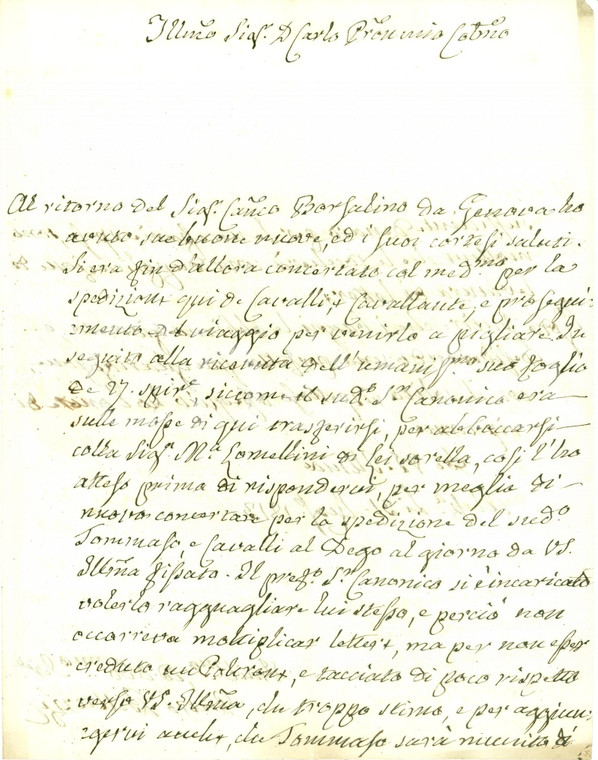 Illmo Sigr. D Carlo Pron mio Colmo
Al ritorno del Sigr. Canco Borsalino da Genova ho
avuto sue buone nuove, ed i suoi cortesi saluti.
Si era fin d'allora concertato col medmo per la
spedizione qui de Cavalli, e Cavallante, e prosegui-
mento del viaggio per venirlo a pigliare. In
seguito alla ricevuta dell'umanissma suo foglio
de 27. spire, siccome il sudo. Sr Canonico era
sulle mosse di qui trasferirsi per abboccarsi
colla Siga. Ma Lomellini di Lei sorella, così l'ho
atteso prima di risponderVi, per meglio di
nuovo concertare per la spedizione del sudo
Tommaso, e Cavalli al Dego al giorno da VS.
Illma fissato. Il prefo. Sr Canonico si è incaricato
volerlo ragguagliare lui stesso, e perciò non
occorreva moltiplicar lettere, ma per non esser
creduto un Poltrone, e tacciato di poco rispetto
verso VS. Illma, che troppo stimo, e per aggiun-
gervi anche, che Tommaso sarà munito di